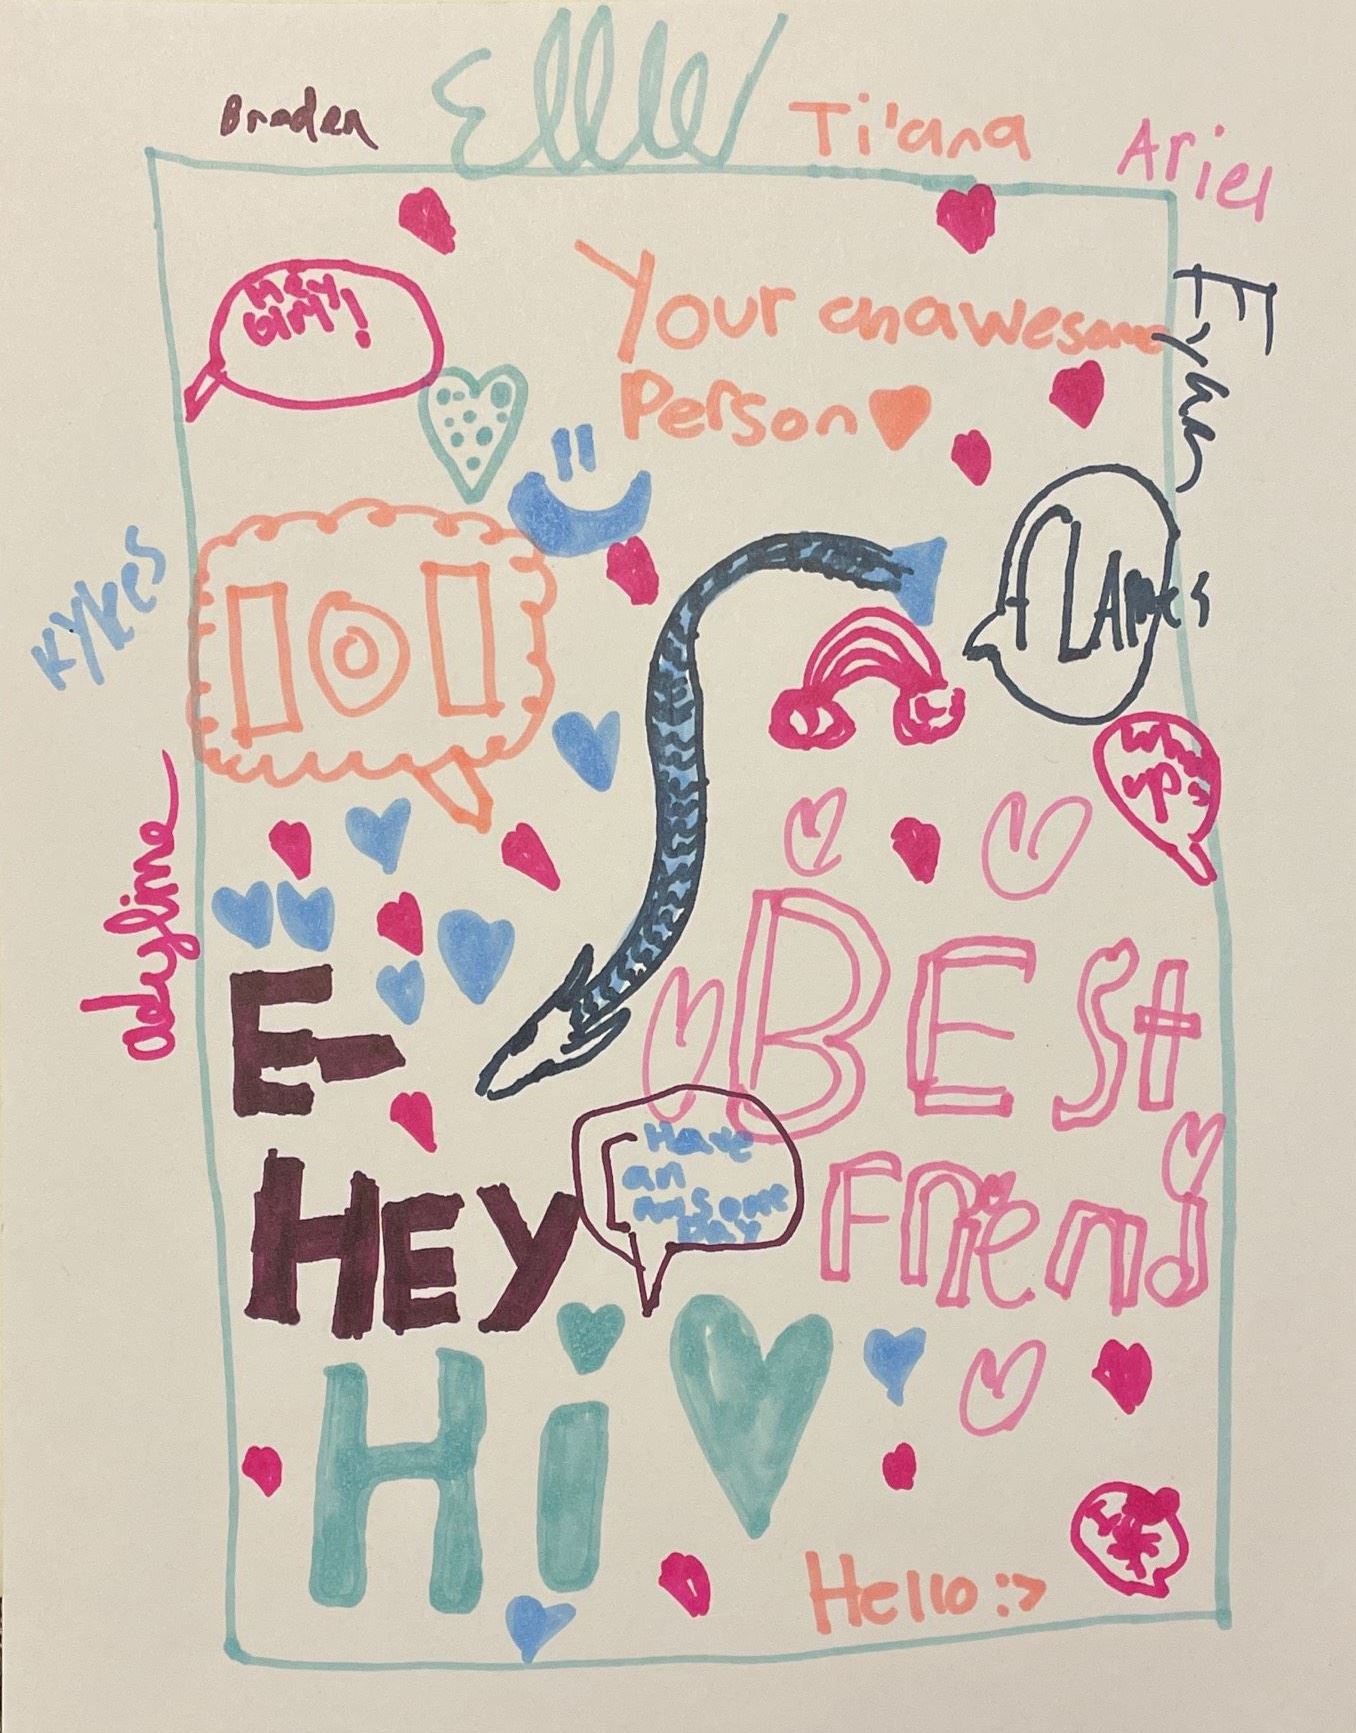 Braden
Elle
Ti'ana
Ariel
HEY
Girl!
Your anawesome
Person
FLAMES
lol
KYKES
What
up
adyline
E-
BEST
Friend
Have
an
awsome
Day
HEY
Hi
Hello :>